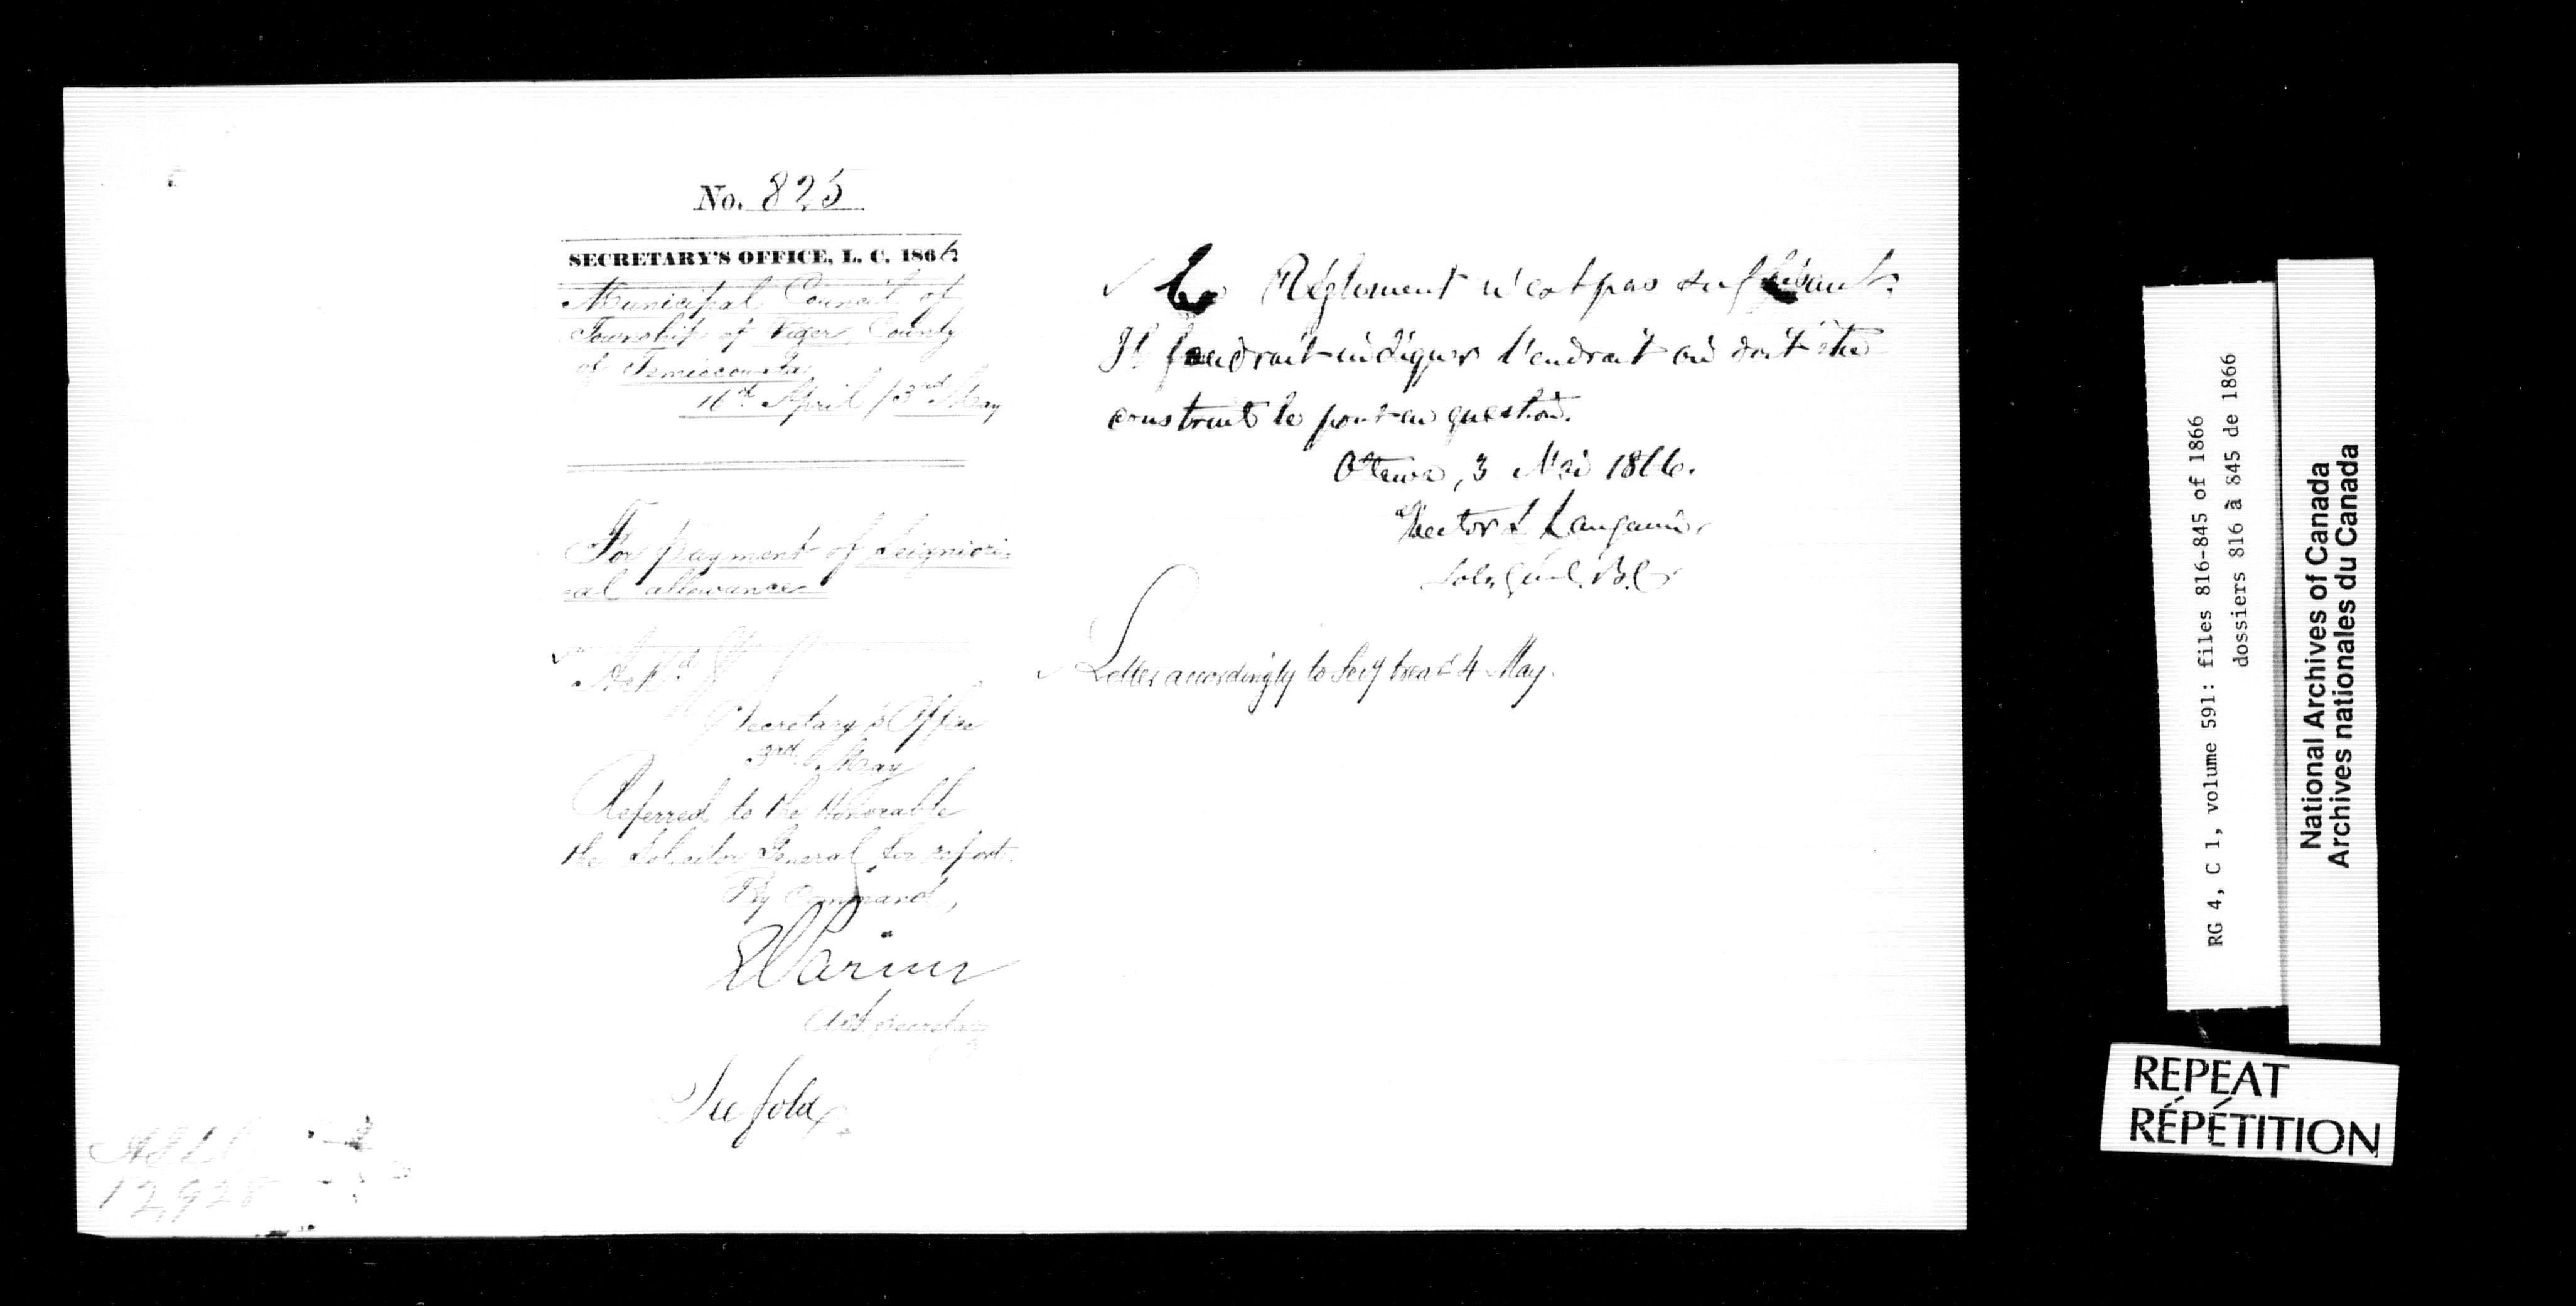 No. 825
SECRETARY'S OFFICE, L. C. 1866
Municipal Council of
Township of Viger, County
of Temiscouata
16th April / 3rd May
For payment of Seignieuri-
al allowance
Ackd
Secretary's Office
3rd May
Referred to the Honorable
the Solicitor General for report.
By Command,
Asst. Secretary
See fold
12,928
Ce Réglement n'est pas suffisant.
Il faudrait indiquer l'endroit où doit être
construit le pont en question.
Ottawa, 3 Mai 1866.
Hector L. Langevin,
Sol. Génl. B.C.
Letter accordingly to Secy Treas 4 May.
RG 4, C 1, volume 591: files 816-845 of 1866
dossiers 816 à 845 de 1866
National Archives of Canada
Archives nationales du Canada
REPEAT
RÉPÉTITION